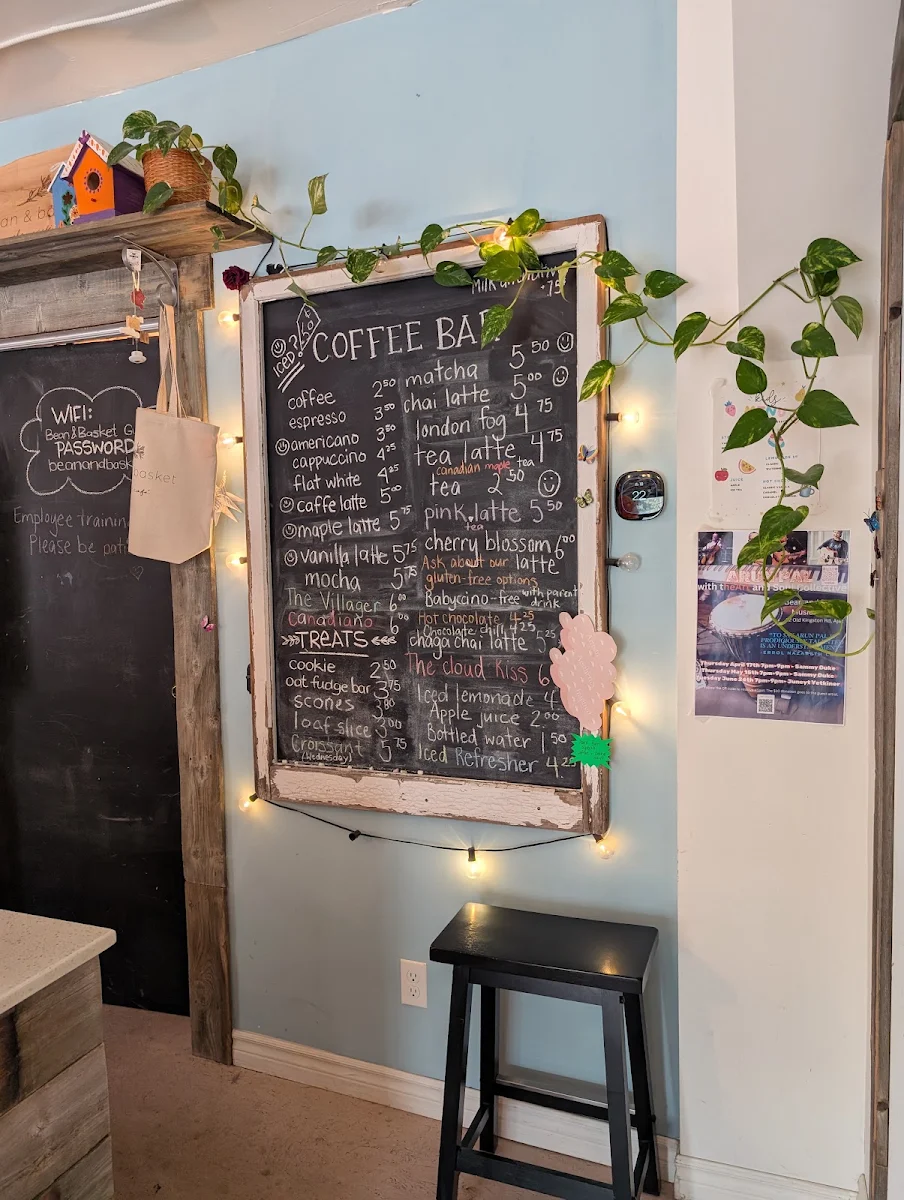 an & b
WIFI:
Bean & Basket G
PASSWORD
beanandbask
Employee training
Please be pat
basket
Milk
.75
Iced?
COFFEE BA
coffee 2⁵⁰
espresso 3⁵⁰
americano 3⁵⁰
cappuccino 4²⁵
flat white 4²⁵
caffe latte 5⁰⁰
maple latte 5⁷⁵
vanilla latte 5⁷⁵
mocha 5⁷⁵
The Villager 6⁰⁰
Canadiano 6⁰⁰
TREATS
cookie 2⁵⁰
oat fudge bar 3⁷⁵
scones 3⁸⁰
loaf slice 3⁰⁰
Croissant 5⁷⁵
(Wednesday)
matcha 5⁵⁰
chai latte 5⁰⁰
london fog 4⁷⁵
tea latte 4⁷⁵
canadian maple tea
tea 2⁵⁰
pink latte 5⁵⁰
tea
cherry blossom 6⁰⁰
latte
Ask about our
gluten-free options
Babycino-free with parent
drink
Hot chocolate 4.25
Chocolate chill
chaga chai latte 5.25
The cloud kiss 6
Iced lemonade 4
Apple juice 2⁰⁰
Bottled water 1⁵⁰
Iced Refresher 4.25
22
JUICE
with theArt and Soul
Old Kingston Rd,
IS AN UNDERSTATEMENT
Thursday April 17th 7pm-9pm - Sammy Duke
Thursday May 15th 7pm-9pm - Sammy Duke